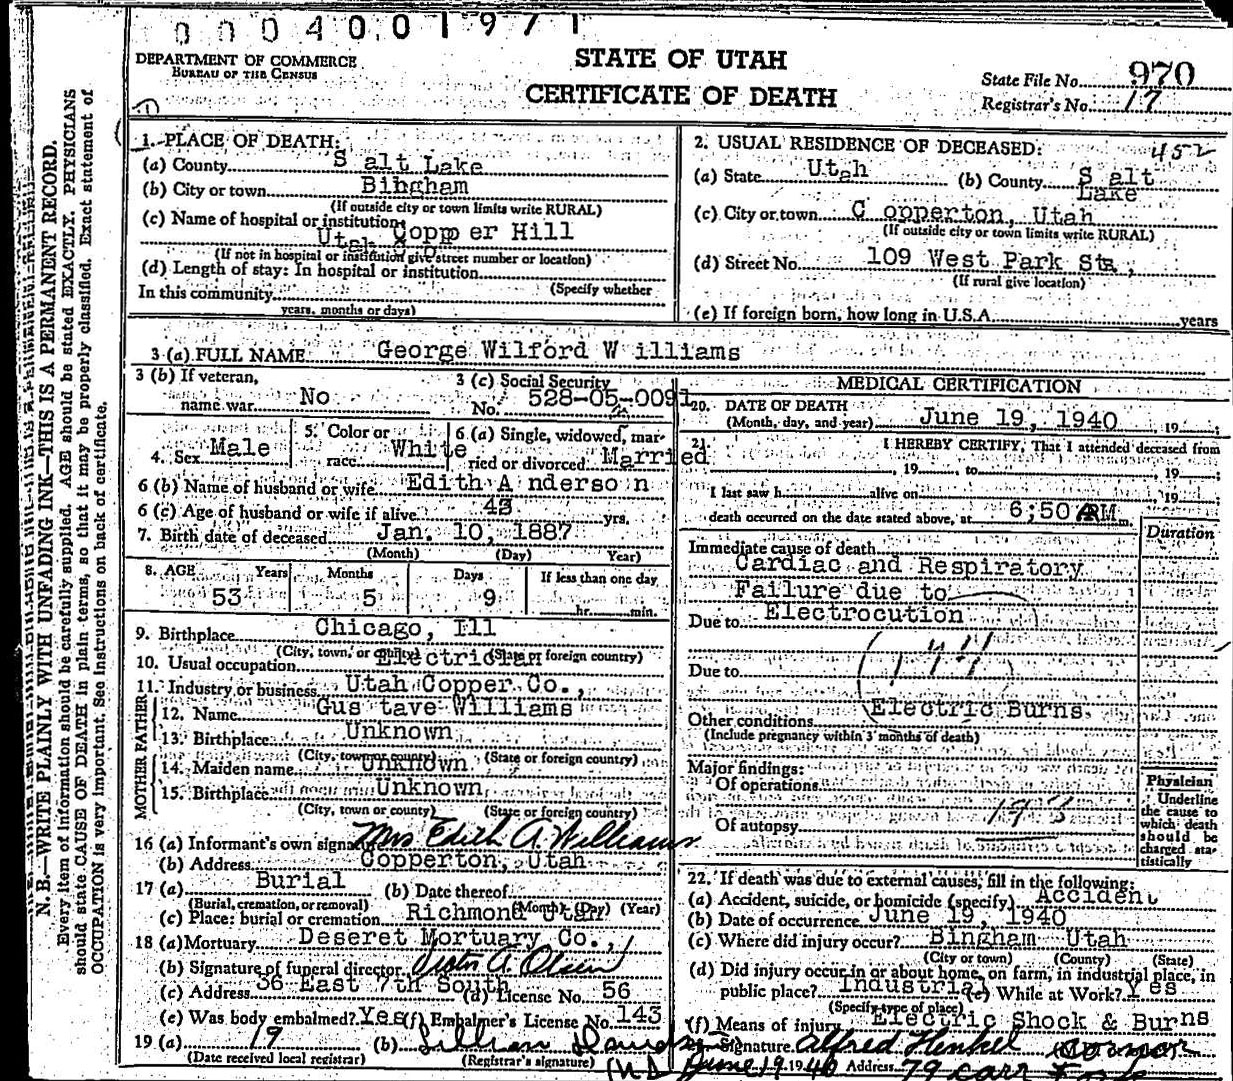 0004001971
DEPARTMENT OF COMMERCE
BUREAU OF THE CENSUS
STATE OF UTAH
CERTIFICATE OF DEATH
State File No. 970
Registrar's No. 17
1. PLACE OF DEATH:
(a) County S alt Lake
(b) City or town Bingham
(If outside city or town limits write RURAL)
(c) Name of hospital or institution:
Utah Copper Hill
(If not in hospital or institution give street number or location)
(d) Length of stay: In hospital or institution
(Specify whether
In this community
years, months or days)
2. USUAL RESIDENCE OF DECEASED: 452
(a) State Utah (b) County S alt Lake
(c) City or town C opperton, Utah
(If outside city or town limits write RURAL)
(d) Street No. 109 West Park St.,
(If rural give location)
(e) If foreign born, how long in U.S.A. years
3 (a) FULL NAME George Wilford W illiams
3 (b) If veteran,
name war No
3 (c) Social Security
No. 528-05-0091
4. Sex Male
5. Color or
race White
6 (a) Single, widowed, mar-
ried or divorced Married
6 (b) Name of husband or wife Edith A nderso n
6 (c) Age of husband or wife if alive 43 yrs.
7. Birth date of deceased Jan. 10, 1887
(Month) (Day) Year)
8. AGE Years Months Days If less than one day
53 5 9 hr. min.
9. Birthplace Chicago, Ill
(City, town, or county) (State or foreign country)
10. Usual occupation Electrician
11. Industry or business Utah Copper Co.,
FATHER
12. Name Gus tave Williams
13. Birthplace Unknown
(City, town or county) (State or foreign country)
MOTHER
14. Maiden name Unknown
15. Birthplace Unknown
(City, town or county) (State or foreign country)
16 (a) Informant's own signature Mrs Edith A. Williams
(b) Address Copperton, Utah
17 (a) Burial (b) Date thereof
(Burial, cremation, or removal) (Month) (Day) (Year)
(c) Place: burial or cremation Richmond Utah
18 (a) Mortuary Deseret Mortuary Co.,
(b) Signature of funeral director Victor A. Olsen
(c) Address 36 East 7th South (d) License No. 56
(e) Was body embalmed? Yes (f) Embalmer's License No. 143
19 (a) 19 (b) Lillian
(Date received local registrar) (Registrar's signature)
MEDICAL CERTIFICATION
20. DATE OF DEATH
(Month, day, and year) June 19, 1940, 19
21. I HEREBY CERTIFY, That I attended deceased from
, 19 , to , 19 ;
I last saw h alive on , 19 ;
death occurred on the date stated above, at 6;50 M.
Duration
Immediate cause of death
Cardiac and Respiratory
Failure due to
Due to Electrocution
Due to
Electric Burns
Other conditions
(Include pregnancy within 3 months of death)
Major findings:
Of operations
193
Of autopsy
Physician
Underline
the cause to
which death
should be
charged sta-
tistically
22. If death was due to external causes, fill in the following:
(a) Accident, suicide, or homicide (specify) Accident
(b) Date of occurrence June 19, 1940
(c) Where did injury occur? Bingham Utah
(City or town) (County) (State)
(d) Did injury occur in or about home, on farm, in industrial place, in
public place? Industrial (e) While at Work? Yes
(Specify type of place)
(f) Means of injury Electric Shock & Burns
Signature Alfred Henkel
June 19 1940 Address 79
N. B.—WRITE PLAINLY WITH UNFADING INK—THIS IS A PERMANENT RECORD.
Every item of information should be carefully supplied. AGE should be stated EXACTLY. PHYSICIANS
should state CAUSE OF DEATH in plain terms, so that it may be properly classified. Exact statement of
OCCUPATION is very important. See instructions on back of certificate.